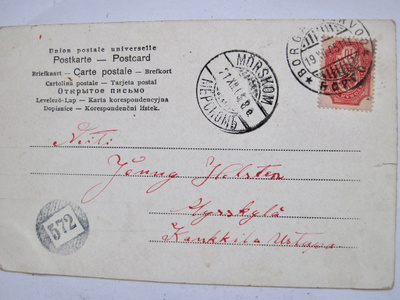 Union postale universelle
Postkarte — Postcard
Briefkaart — Carte postale — Brefkort
Cartolina postale — Tarjeta postal
Открытое письмо
Levelező-Lap — Karta korespondencyjna
Dopisnice — Korespondenční lístek.
MÖRSKOM
Neiti
Jenny Holsten
Myrskylä
Kankkila
572